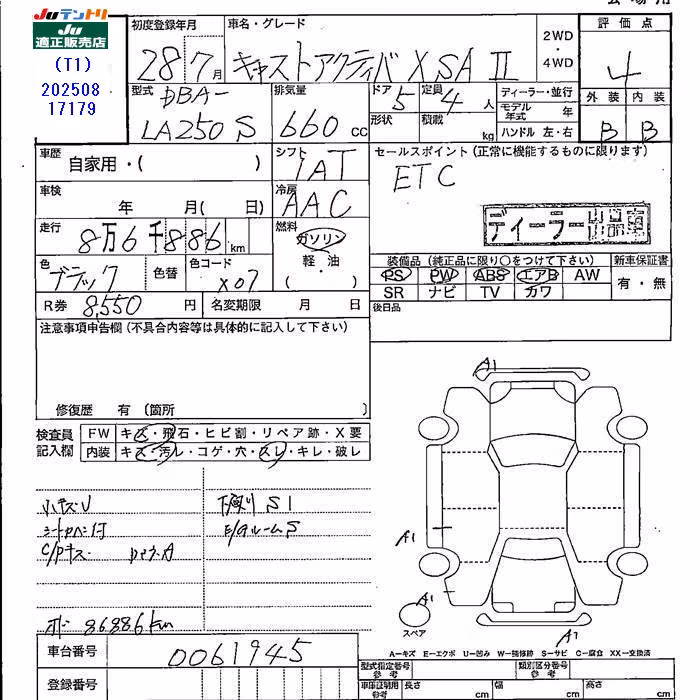 Juテントリ
Ju
適正販売店
(T1)
202508
17179
初度登録年月
28年7月
車名・グレード
キャストアクティバ X SA II
2WD
・
4WD
評価点
4
外装 内装
B B
型式
DBA-
LA250S
排気量
660 cc
ドア 5
形状
定員 4 人
積載 kg
ディーラー・並行
モデル年式 年
ハンドル 左・右
車歴
自家用・( )
シフト
IAT
セールスポイント(正常に機能するものに限ります)
ETC
ディーラー出品車
車検
年 月( 日)
冷房
AAC
走行
8万6千886km
燃料
ガソリン
軽・油
( )
色
ブラック
色替
色コード
X07
装備品(純正品に限り○をつけて下さい)
PS PW ABS エアB AW
SR ナビ TV カワ
新車保証書
有・無
R券 8,550 円
名変期限 月 日
後日品
注意事項申告欄(不具合内容等は具体的に記入して下さい)
修復歴 有(箇所 )
検査員
記入欄
FW キズ・飛石・ヒビ割・リペア跡・X要
内装 キズ・汚レ・コゲ・穴・スレ・キレ・破レ
小キズU
下廻り S1
E/gルームS
C/Pキズ
86886km
A1
A1
A1
A1
スペア
A−キズ E−エクボ U−凹み W−補修跡 S−サビ C−腐食 XX−交換済
車台番号
0061945
登録番号
型式指定番号
参考
類別区分番号
参考
車庫証明用
参考
長さ cm
幅 cm
高さ cm